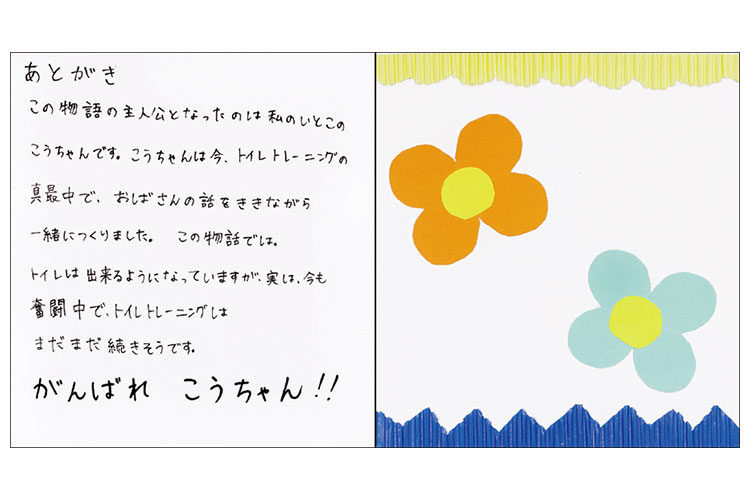 あとがき
この物語の主人公となったのは私のいとこの
こうちゃんです。こうちゃんは今、トイレトレーニングの
真最中で、おばさんの話をききながら
一緒につくりました。 この物語では。
トイレは出来るようになっていますが、実は、今も
奮闘中で、トイレトレーニングは
まだまだ続きそうです。
がんばれ こうちゃん!!